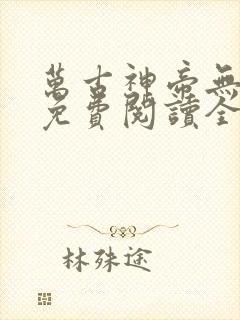 萬古神帝無
免費閱讀全
林殊途